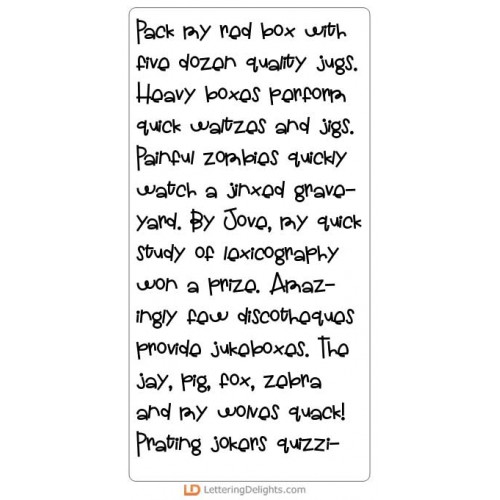 Pack my red box with
five dozen quality jugs.
Heavy boxes perform
quick waltzes and jigs.
Painful zombies quickly
watch a jinxed grave-
yard. By Jove, my quick
study of lexicography
won a prize. Amaz-
ingly few discotheques
provide jukeboxes. The
jay, pig, fox, zebra
and my wolves quack!
Prating jokers quizzi-
LD LetteringDelights.com